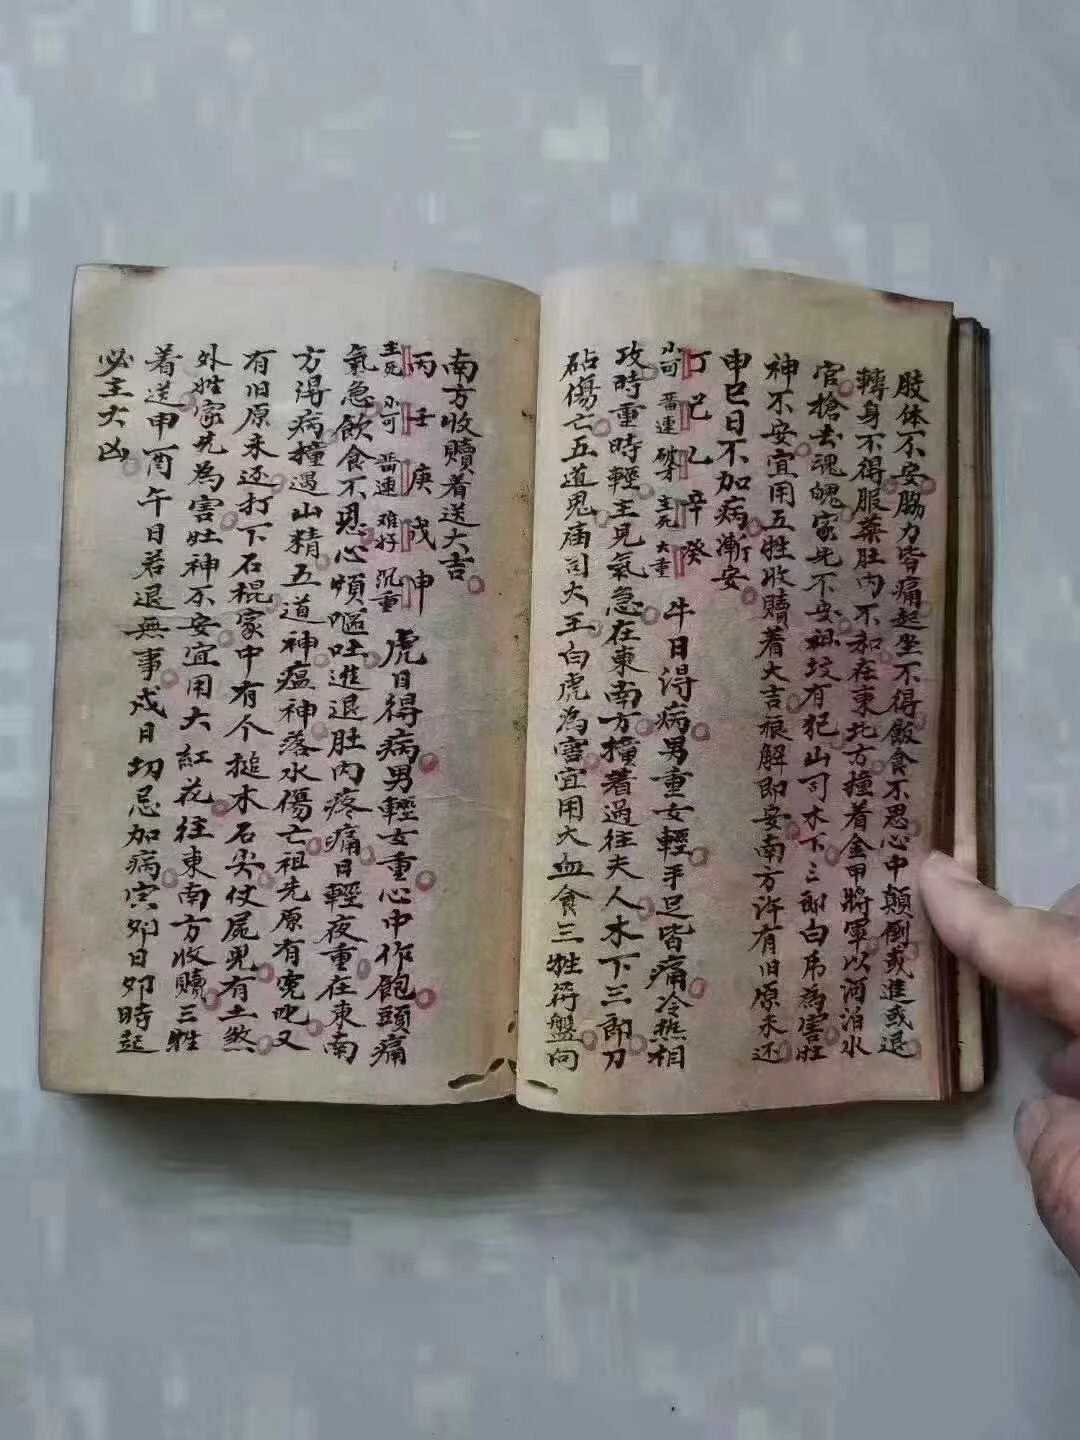 肢体不安腸力皆痛起坐不得飯食不思心中顛倒或進或退
轉身不得服藥肚内不和在東北方撞着金甲將軍以河泊水
官搶去魂魄家先不安祖坟有犯山司木下三郎白虎為害灶
神不安宜用五牲收贖着大吉痕解即安南方许有旧原未还
申巳日不加病漸安
丁巳乙辛癸 牛日得病男重女輕手足皆痛冷热相
小可 主死 大重
攻時重時輕主見氣急在東南方撞着過往夫人木下三郎刀
砧傷亡五道鬼庙司大王白虎為害宜用大血食三牲符盤向
南方收贖着送大吉
丙壬庚戊申 虎日得病男輕女重心中作飽頭痛
主死 小可 难好 沉重
氣急飲食不思心煩嘔吐進退肚内疼痛日輕夜重在東南
方得病撞遇山精五道神瘟神落水傷亡祖先原有冤吆又
有旧原未还打下石棍家中有个搥木石安仗屍鬼有土煞
外姓家先為害灶神不安宜用大紅花往東南方收贖三牲
着送申酉午日若退無事戍日切忌加病寅卯日卯時起
必主大凶